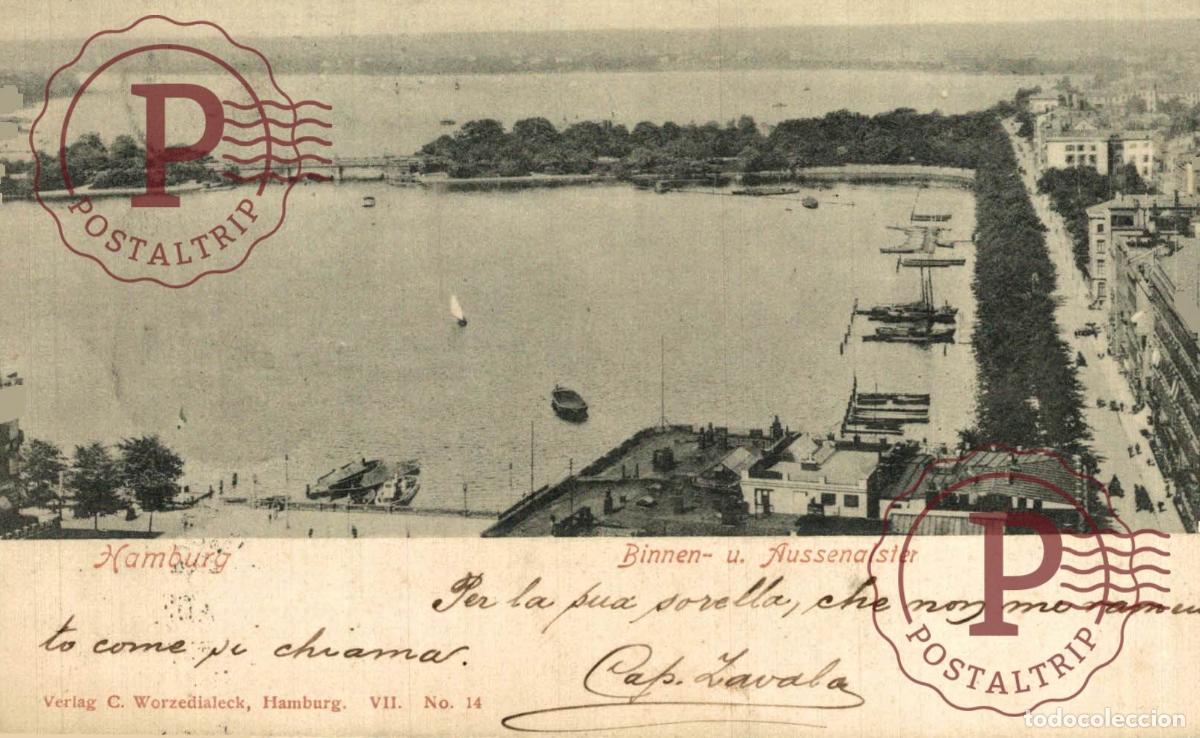 P
POSTALTRIP
Hamburg
Binnen- u. Aussenalster
Per la sua sorella, che non me ramen
to come si chiama.
Cap. Zavala
Verlag C. Worzedialeck, Hamburg. VII. No. 14
P
POSTALTRIP
todocoleccion